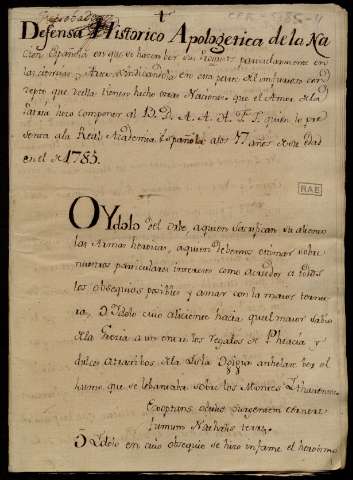 Reprobada
Defensa Historico Apologetica de la Na
cion Española en que se hacen ver sus progresos particularmente en
las ciencias y Artes vindicandola en esta parte del injusto con
cepto que de ella tienen hecho otras Naciones que el Amor de la
Patria hizo componer al B. D. A. A. A. F. P. quien lo pre
senta a la Real Academia Española a los 17 años de su edad
en el de 1785.
RAE
O Ydolo del Orbe, a quien sacrifican su aliento
las Armas heroicas, a quien debemos estimar sobre
nuestros particulares intereses como acreedor a todos
los obsequios posibles y amar con la maior ternu
ra, O Idolo cuio aliciente hacia que el maior sabio
de la Grecia a un en los regalos de Pheacia y
dulces atractivos de la Isla Ogigia anhelase ver el
humo que se lebantaba sobre los Montes
Exoptans oculis surgentem cernere
fumum Nathalis terræ
O Idolo en cuio obsequio se hizo infame el heroismo